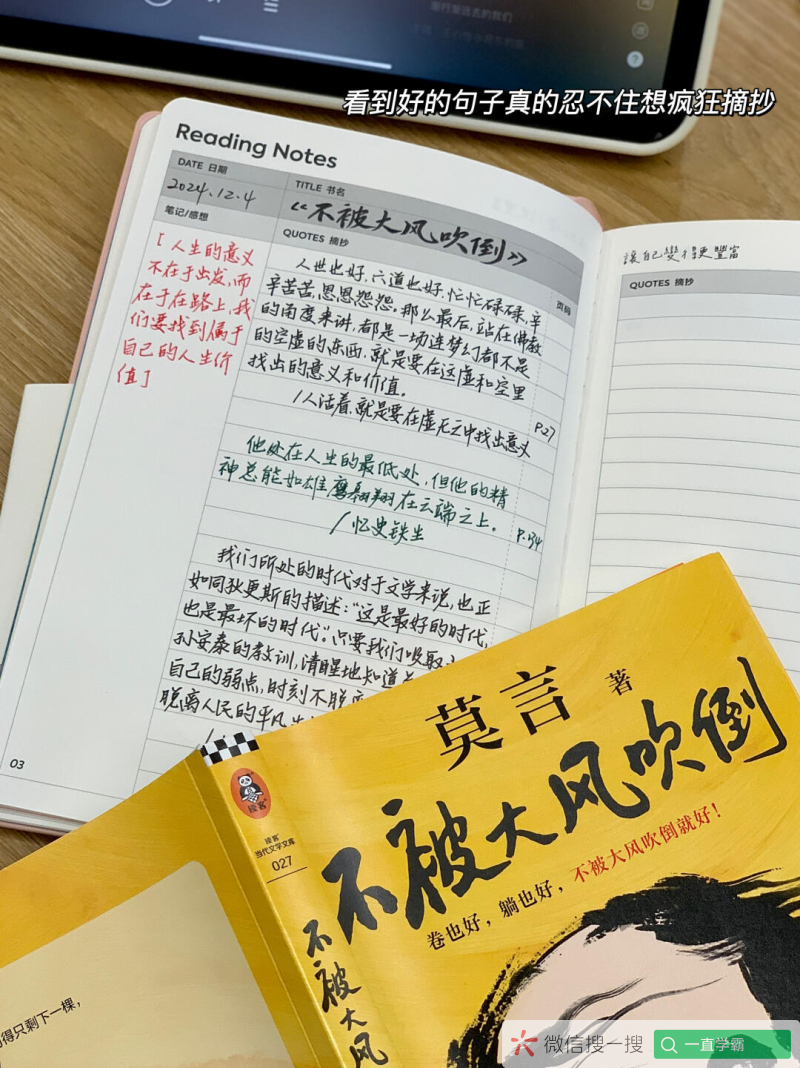 看到好的句子真的忍不住想疯狂摘抄
Reading Notes
DATE 日期
2024.12.4
TITLE 书名
《不被大风吹倒》
笔记/感想
QUOTES 摘抄
页码
[人生的意义
不在于出发,而
在于在路上,我
们要找到属于
自己的人生价
值]
人世也好,六道也好,忙忙碌碌,辛
辛苦苦,恩恩怨怨,那么最后,站在佛教
的角度来讲,都是一场连梦幻都不是
的空虚的东西,就是要在这虚和空里
找出的意义和价值。
/人活着,就是要在虚无之中找出意义
P.27
他处在人生的最低处,但他的精
神总能如雄鹰翱翔在云端之上。
/忆史铁生
P.34
我们所处的时代对于文学来说,也正
如同狄更斯的描述:“这是最好的时代,
也是最坏的时代”。只要我们吸取
孙安泰的教训,清醒地知道
自己的弱点,时刻不脱离
脱离人民的平凡生
03
讓自己變得更豐富
QUOTES 摘抄
莫言 著
不被大风吹倒
卷也好,躺也好,不被大风吹倒就好!
读客
读客
当代文学文库
027
不被大风
得只剩下一棵,
微信搜一搜
一直学霸